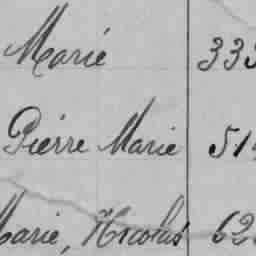 Marié 333
Piérre Marie 514
Marie, Nicolas 62